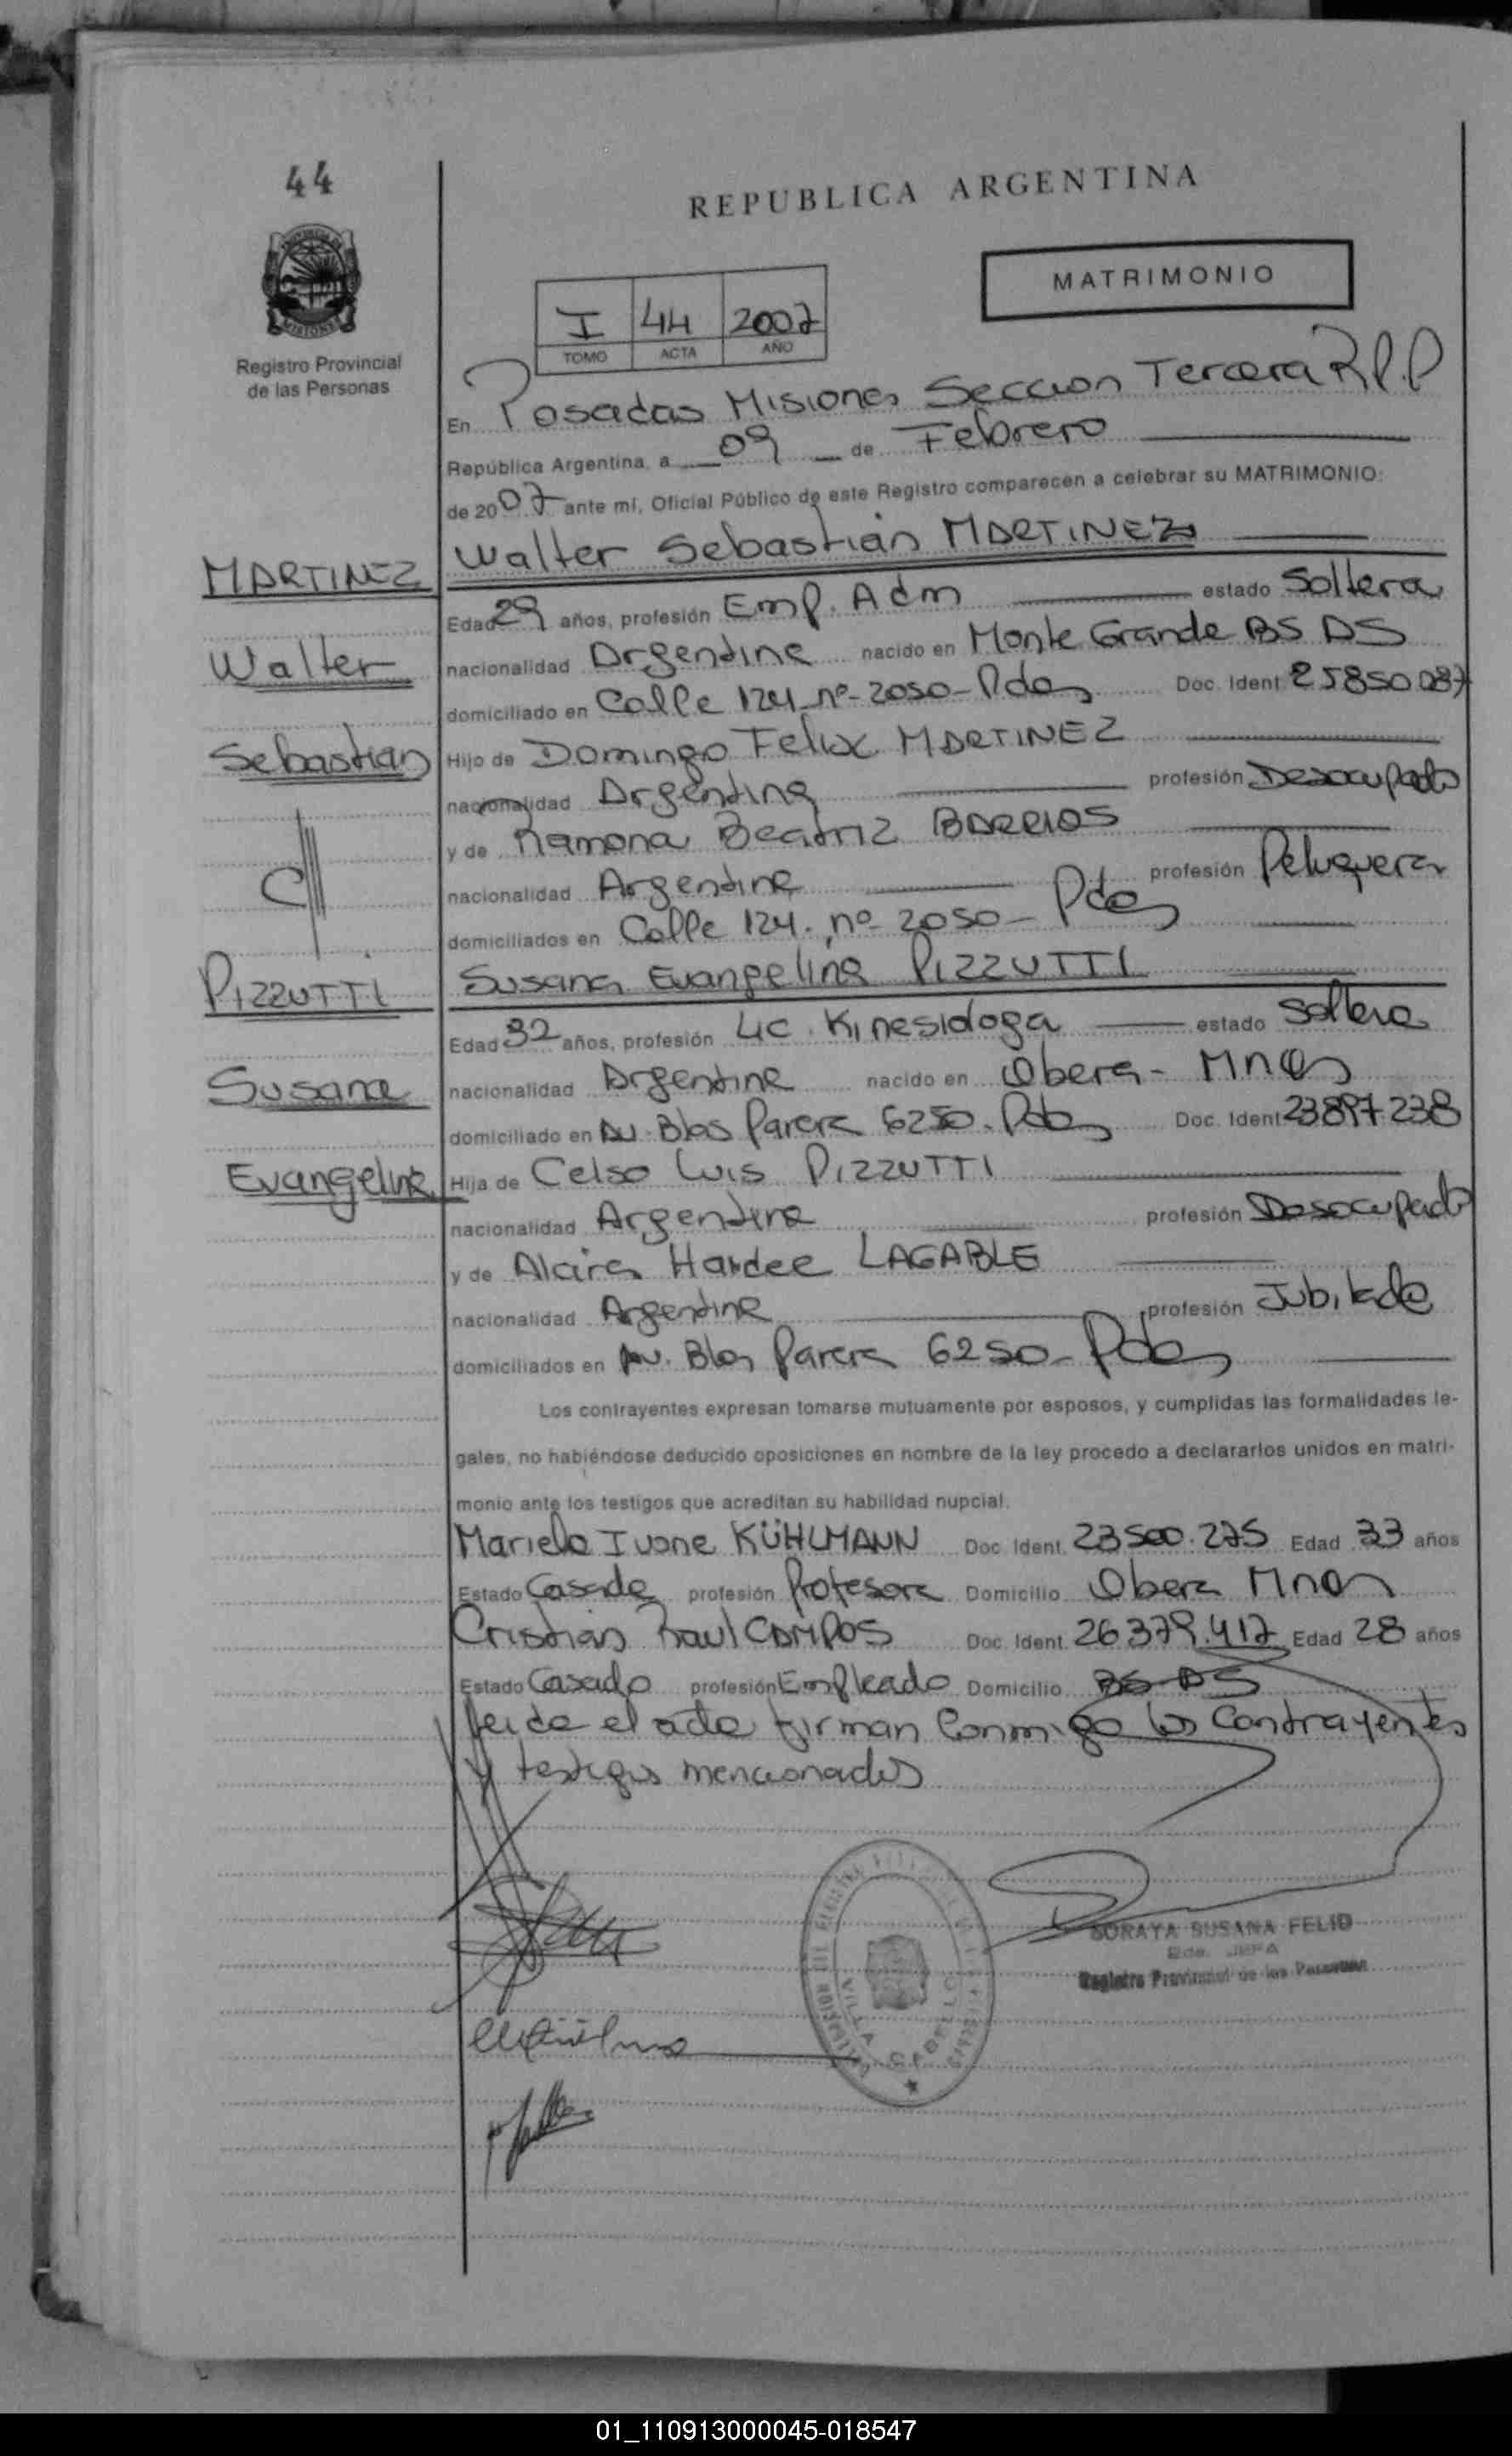 44
REPUBLICA ARGENTINA
PROVINCIA DE
MISIONES
Registro Provincial
de las Personas
MATRIMONIO
I 44 2007
TOMO ACTA AÑO
En Posadas Misiones Seccion Tercera R.P.P
República Argentina, a 09 de Febrero
de 2007 ante mí, Oficial Público de este Registro comparecen a celebrar su MATRIMONIO:
MARTINEZ Walter Sebastian MARTINEZ
Edad 29 años, profesión Emp. Adm estado Soltera
Walter nacionalidad Argentina nacido en Monte Grande BS AS
domiciliado en Calle 124 nº 2050 - Pdas Doc. Ident. 25850.087
Sebastian Hijo de Domingo Felix MARTINEZ
nacionalidad Argentina profesión Desocupado
y de Ramona Beatriz BARRIOS
C/ nacionalidad Argentina profesión Peluquera
domiciliados en Calle 124. nº 2050 - Pdas
PIZZUTTI Susana Evangelina PIZZUTTI
Edad 32 años, profesión Lic. Kinesiologa estado Soltera
Susana nacionalidad Argentina nacido en Obera - Mnes
domiciliado en Av. Blas Parera 6250 - Pdas Doc. Ident. 23897.238
Evangelina Hija de Celso Luis PIZZUTTI
nacionalidad Argentina profesión Desocupado
y de Alcira Haidee LAGABLE
nacionalidad Argentina profesión Jubilada
domiciliados en Av. Blas Parera 6250 - Pdas
Los contrayentes expresan tomarse mutuamente por esposos, y cumplidas las formalidades le-
gales, no habiéndose deducido oposiciones en nombre de la ley procedo a declararlos unidos en matri-
monio ante los testigos que acreditan su habilidad nupcial.
Mariela Ivone KÜHLMANN Doc. Ident. 23500.275 Edad 33 años
Estado Casada profesión Profesora Domicilio Obera Mnes
Cristian Raul CAMPOS Doc. Ident. 26379.417 Edad 28 años
Estado Casado profesión Empleado Domicilio BS AS
Leida el acta firman conmigo los contrayentes
y testigos mencionados
VILLA CABELLO
SORAYA SUSANA FELIP
JEFA
Registro Provincial de las Personas
01_110913000045-018547